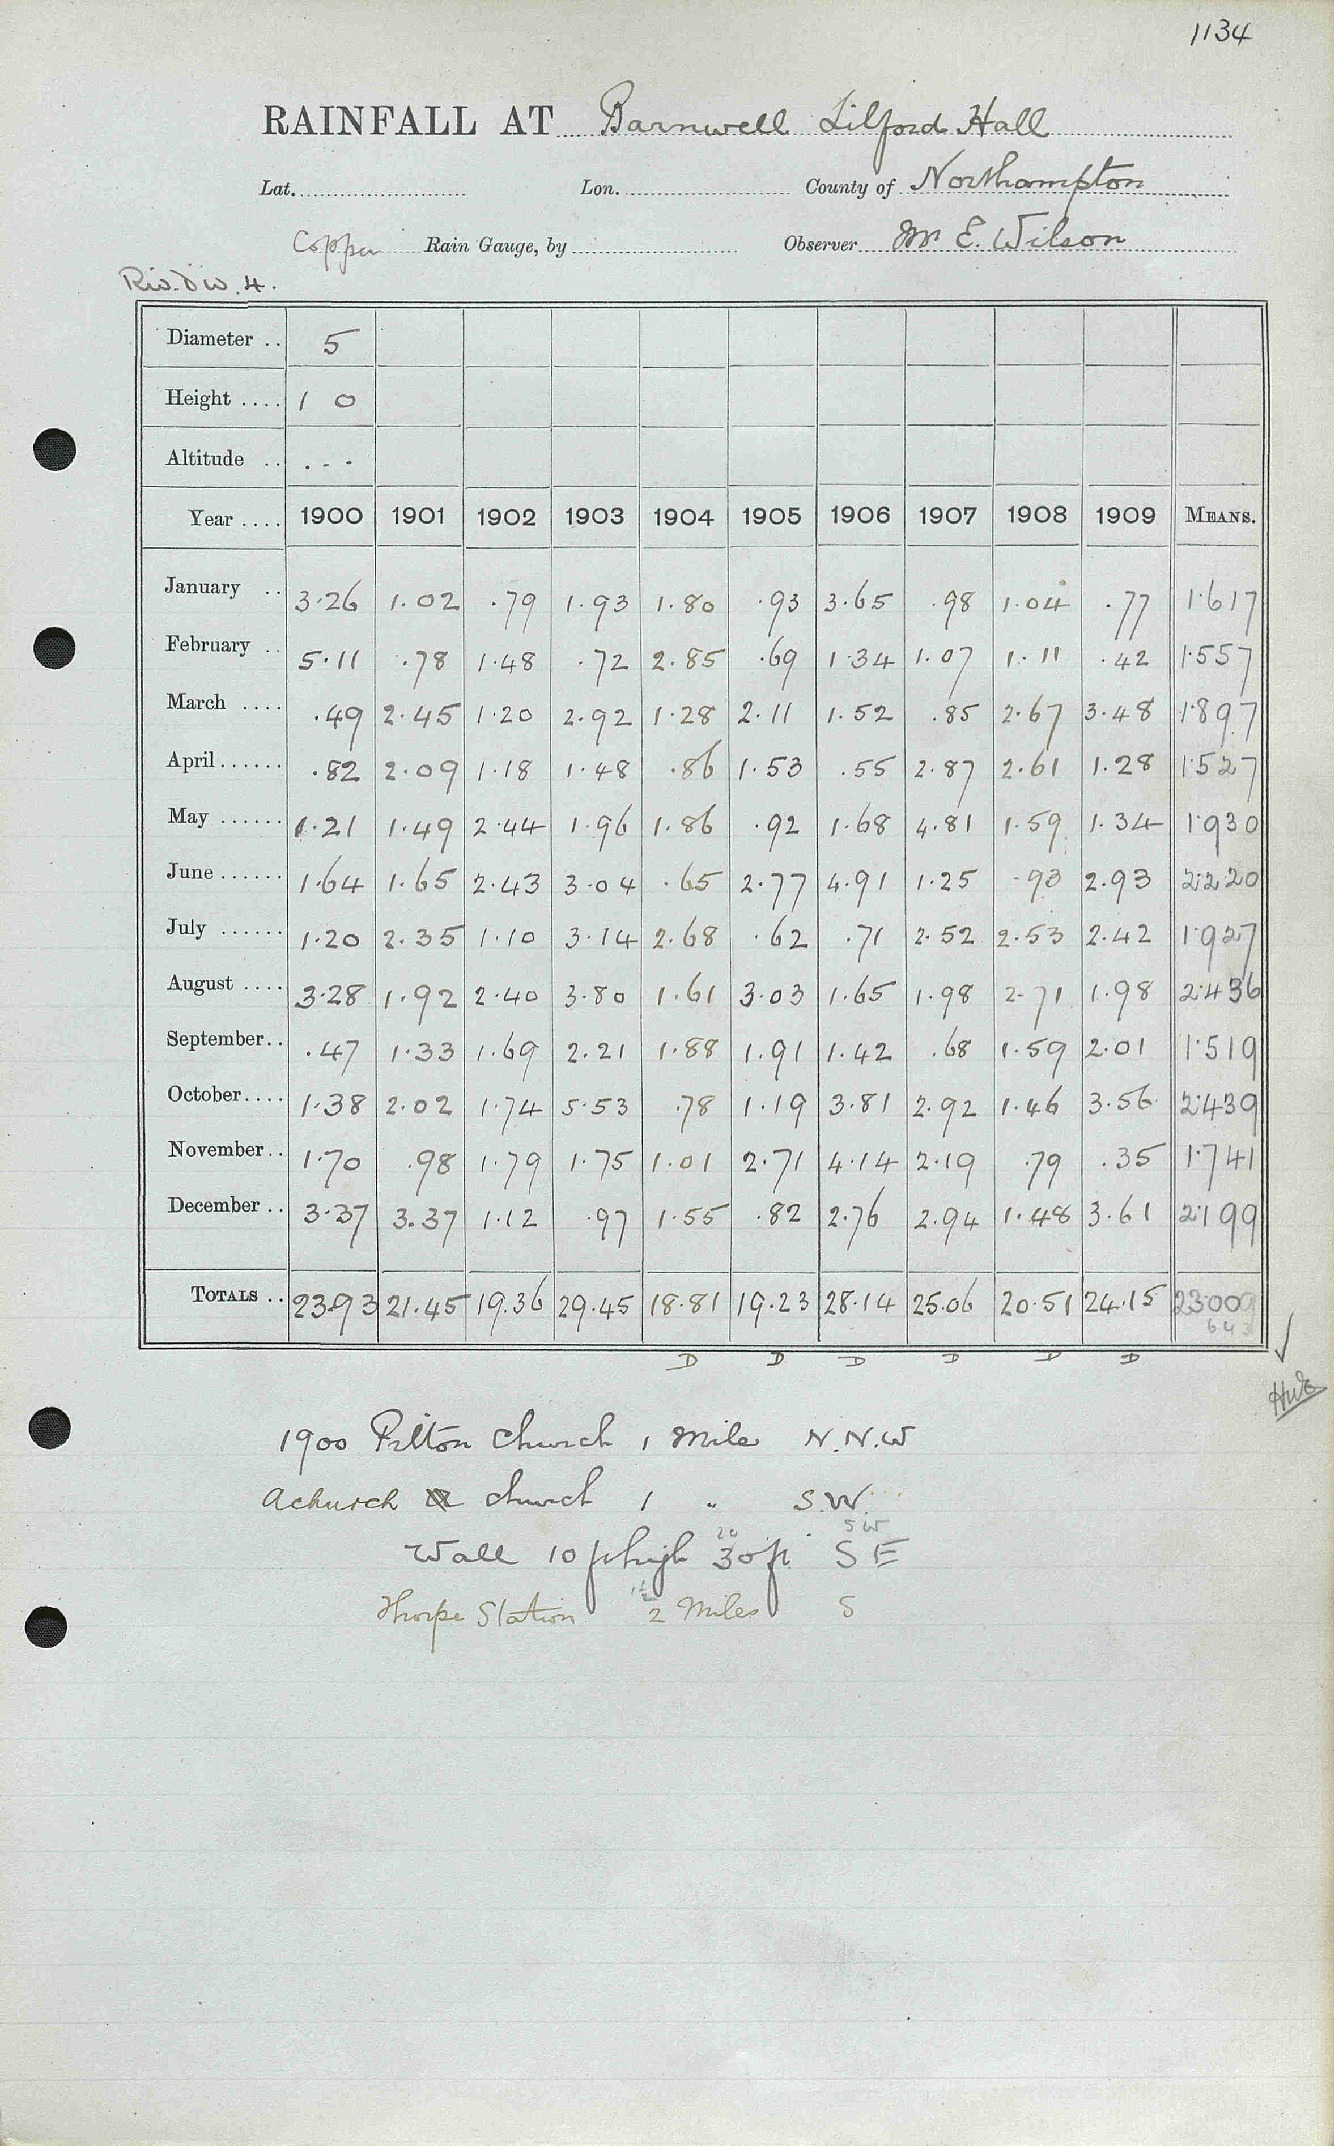 1134
RAINFALL AT Barnwell Lilford Hall
Lat. Lon. County of Northampton
Copper Rain Gauge, by Observer Mr E. Wilson
Riv. Div. 4.
Diameter .. 5
Height .... 1 0
Altitude .. ...
Year .... 1900 1901 1902 1903 1904 1905 1906 1907 1908 1909 MEANS.
January .. 3.26 1.02 .79 1.93 1.80 .93 3.65 .98 1.04 .77 1.617
February .. 5.11 .78 1.48 .72 2.85 .69 1.34 1.07 1.11 .42 1.557
March .... .49 2.45 1.20 2.92 1.28 2.11 1.52 .85 2.67 3.48 1.897
April...... .82 2.09 1.18 1.48 .86 1.53 .55 2.87 2.61 1.28 1.527
May ...... 1.21 1.49 2.44 1.96 1.86 .92 1.68 4.81 1.59 1.34 1.930
June ...... 1.64 1.65 2.43 3.04 .65 2.77 4.91 1.25 .93 2.93 2.220
July ...... 1.20 2.35 1.10 3.14 2.68 .62 .71 2.52 2.53 2.42 1.927
August .... 3.28 1.92 2.40 3.80 1.61 3.03 1.65 1.98 2.71 1.98 2.436
September.. .47 1.33 1.69 2.21 1.88 1.91 1.42 .68 1.59 2.01 1.519
October.... 1.38 2.02 1.74 5.53 .78 1.19 3.81 2.92 1.46 3.56 2.439
November.. 1.70 .98 1.79 1.75 1.01 2.71 4.14 2.19 .79 .35 1.741
December .. 3.37 3.37 1.12 .97 1.55 .82 2.76 2.94 1.48 3.61 2.199
TOTALS .. 23.93 21.45 19.36 29.45 18.81 19.23 28.14 25.06 20.51 24.15 23.009
D D D D D D
1900 Pilton Church 1 Mile N.N.W
Achurch church 1 " S.W.
SW
Wall 10 ft high 30 ft S E
Thorpe Station 2 Miles S